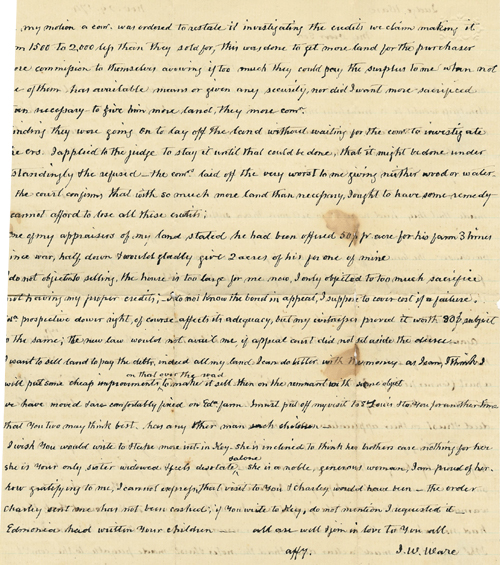 my motion a com<sup>r</sup>. was ordered to restate it investigating the credits we claim making it
1500 to 2,000 less than they sold for, this was done to get more land for the purchaser
commission to themselves avering if too much they could pay the surplus to me when not
of them has available means or given any security, nor did I want more sacrificed
necessary to give him more land, they more com<sup>n</sup>.
they were going on to lay off the land without waiting for the com<sup>r</sup> to investigate
I applied to the judge to stay it until that could be done, that it might be done under
& he refused – the com<sup>rs</sup>. laid off the very worst to me giving neither wood or water
The court confirms that with so much more land than necessary, I ought to have some remedy
cannot afford to lose all these credits;
of my appraisers of my land stated he had been offered 50$ pr acre for his farm 3 times
since war, half down I would gladly give 2 acres of his for one of mine
do not object to selling, the house is too large for me now, I only objected to too much sacrifice
not having my proper credits; I do not know the bond in appeal, I suppose to cover cost if a failure;
prospective dower right, of course affects its adequacy, but my witnesses proved it worth 80$ subject
to the same; the new law would not avail me if appeal court did not set aside the decree
I want to sell land to pay the debts, indeed all my land I can do better with the money as I am, I think I
on that over the road
will put some cheap improvements to make it sell then on the remnant with same object
we have moved & are comfortably fixed on Ed<sup>s</sup> farm – I must put off my visit to St Louis & to You for another time
that You two may think best – has any other man such children
I wish You would write to Sister more into in Key. She is inclined to think her brothers care nothing for her
alone
she is Your only sister widowed & feels desolate, she is a noble, generous woman; I am proud of her.
how gratifying to me, I cannot express, that visit to You & Charley would have been – the order
Charley sent me has not been cashed; if You write to Key, do not mention I requested it –
Edmonia had written Your children – all are well & join in love to You all.
affy. J. W. Ware